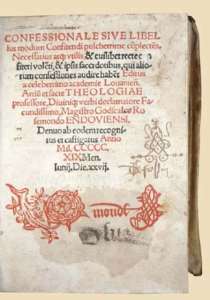 CONFESSIONALE SIVE LIBEL
lus modum Confitendi pulcherrime complectēs,
Necessarius atq; vtilis & cuilibet recte cōfiteri
siteri volēti, & ipsis sacerdotibus, qui alio
rum confessiones audire habēt Editus
a celeberrimo academie Louanień.
Artiū et sacre THEOLOGIAE
professore, Diuiniq; verbi declamatore Fa
cundissimo, Magistro Godscalco Ro
semondo ENDOVIENSI.
Denuo ab eodem recogni
tus et castigatus Anno
Md. CCCCC.
XIX Men.
Iunij, Die. xxvij.